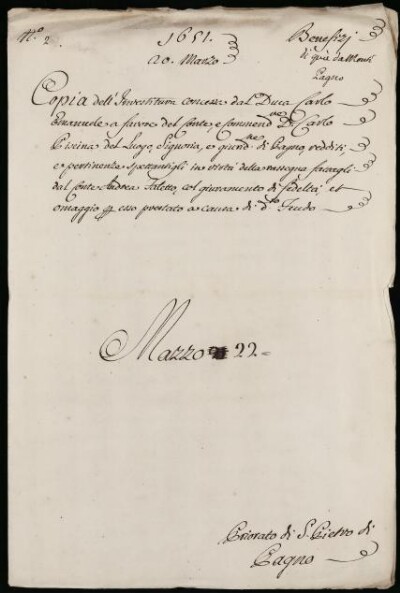 N.º 2
1651.
20. Marzo
Benefizj
di quà da Monti
Pagno
Copia dell'Investitura concessa dal Duca Carlo
Emanuele a favore del Conte, e Commend.re D. Carlo
Piscina del Luogo, Signoria, e giurid.ne di Pagno, redditi,
e pertinenze spettantigli in virtù della rassegna fattagli
dal Conte Andrea Faletto, col giuramento di fedeltà, et
omaggio per esso prestato a causa di d.to Feudo
Mazzo 22
Priorato di S. Pietro di
Pagno